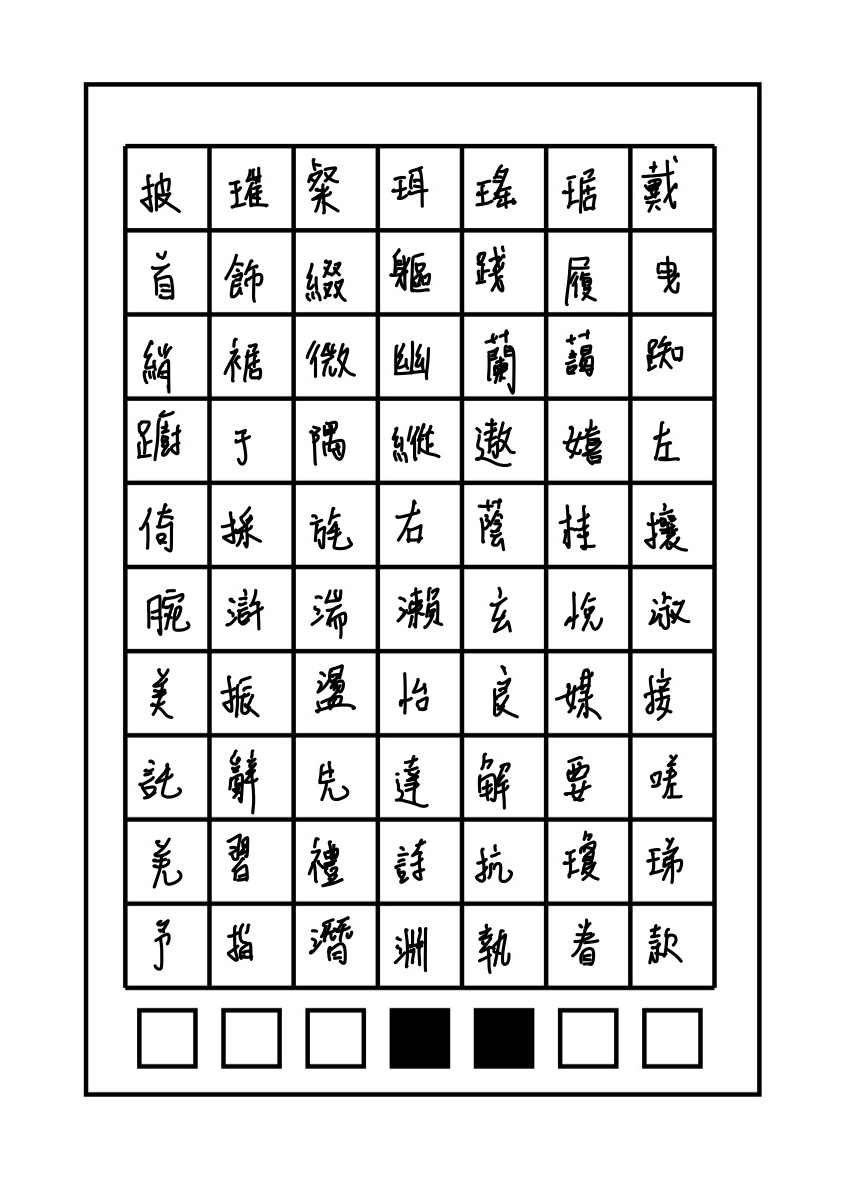 披璀粲珥瑤琚戴
首飾綴軀踐履曳
綃裾微幽蘭藹踟
躕于隅縱遨嬉左
倚採旄右蔭桂攘
腕滸湍瀨玄悅淑
美振盪怡良媒接
託辭先達解要嗟
羌習禮詩抗瓊珶
予指潛淵執眷款